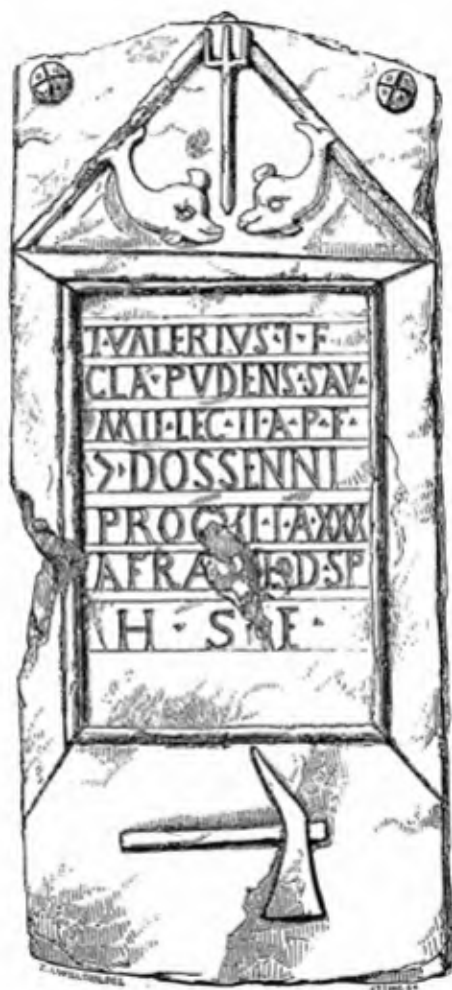 T·VALERIVS·T·F·
CLA·PVDENS·SAV·
MIL·LEG·II·A·P·F·
>·DOSSENNI
A·XXX
AERA D·SP
H·S·E·